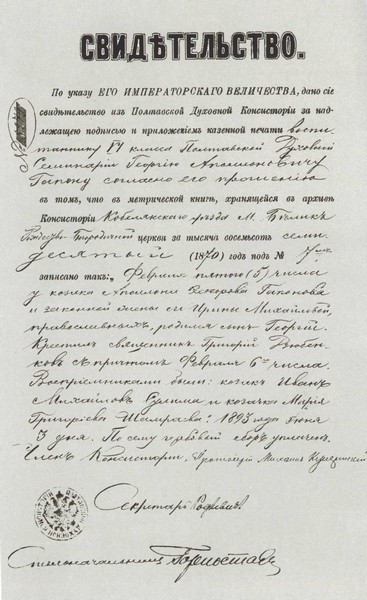 СВИДѢТЕЛЬСТВО.
По указу ЕГО ИМПЕРАТОРСКАГО ВЕЛИЧЕСТВА, дано сіе
свидѣтельство изъ Полтавской Духовной Консисторіи за над-
лежащею подписью и приложеніемъ казенной печати воспи-
таннику VI класса Полтавской Духовой
Семинаріи Георгію Аполлоновичу
Гапону согласно его прошенію
въ томъ, что въ метрической книгѣ, хранящейся въ архивѣ
Консисторіи Кобелякскаго уѣзда М. Бѣлик
Рождество Богородичной церкви за тысяча восемьсотъ семи
десятый (1870) годъ подъ №
записано такъ: Февраля пятаго (5) числа
у козака Аполлона Ѳедорова Гапонова
и законной жены его Ирины Михайловой,
православныхъ, родился сынъ Георгій.
Крестилъ священникъ Григорій
ковъ съ причтомъ Февраля 6го числа.
Воспріемниками были: козакъ Иванъ
Михайловъ и козачка Марія
Григоріева 1893 года Іюня
3 дня. По сему гербовый сборъ уплаченъ.
Членъ Консисторіи, Протоіерей Михаилъ
Секретарь
Столоначальникъ Горностаевъ